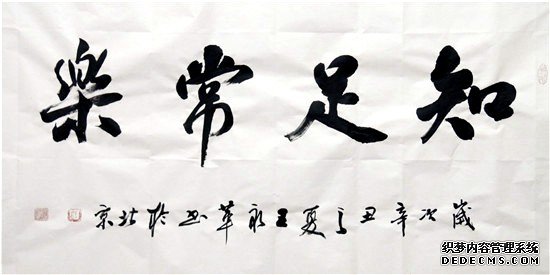 知足常樂
歲次辛丑之夏王永華书於北京
织梦内容管理系统
DEDECMS.COM